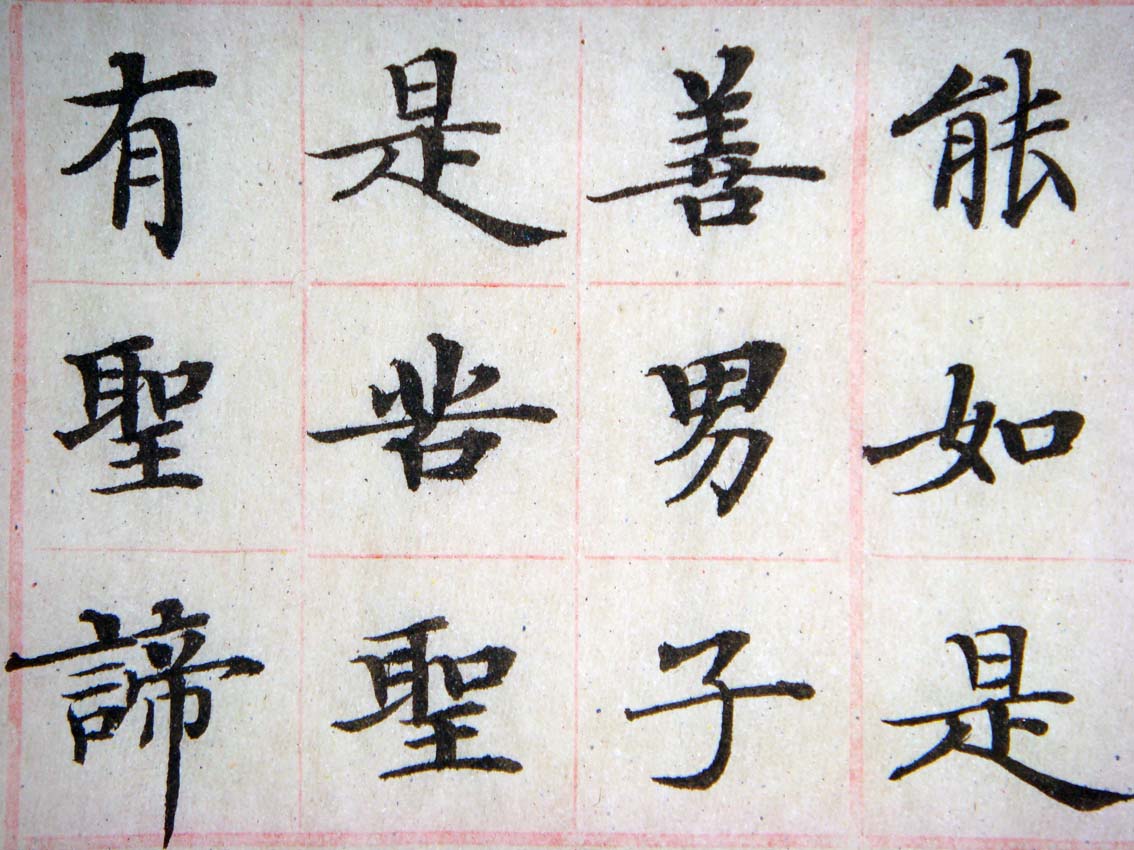 能如是
善男子
是苦聖
有聖諦